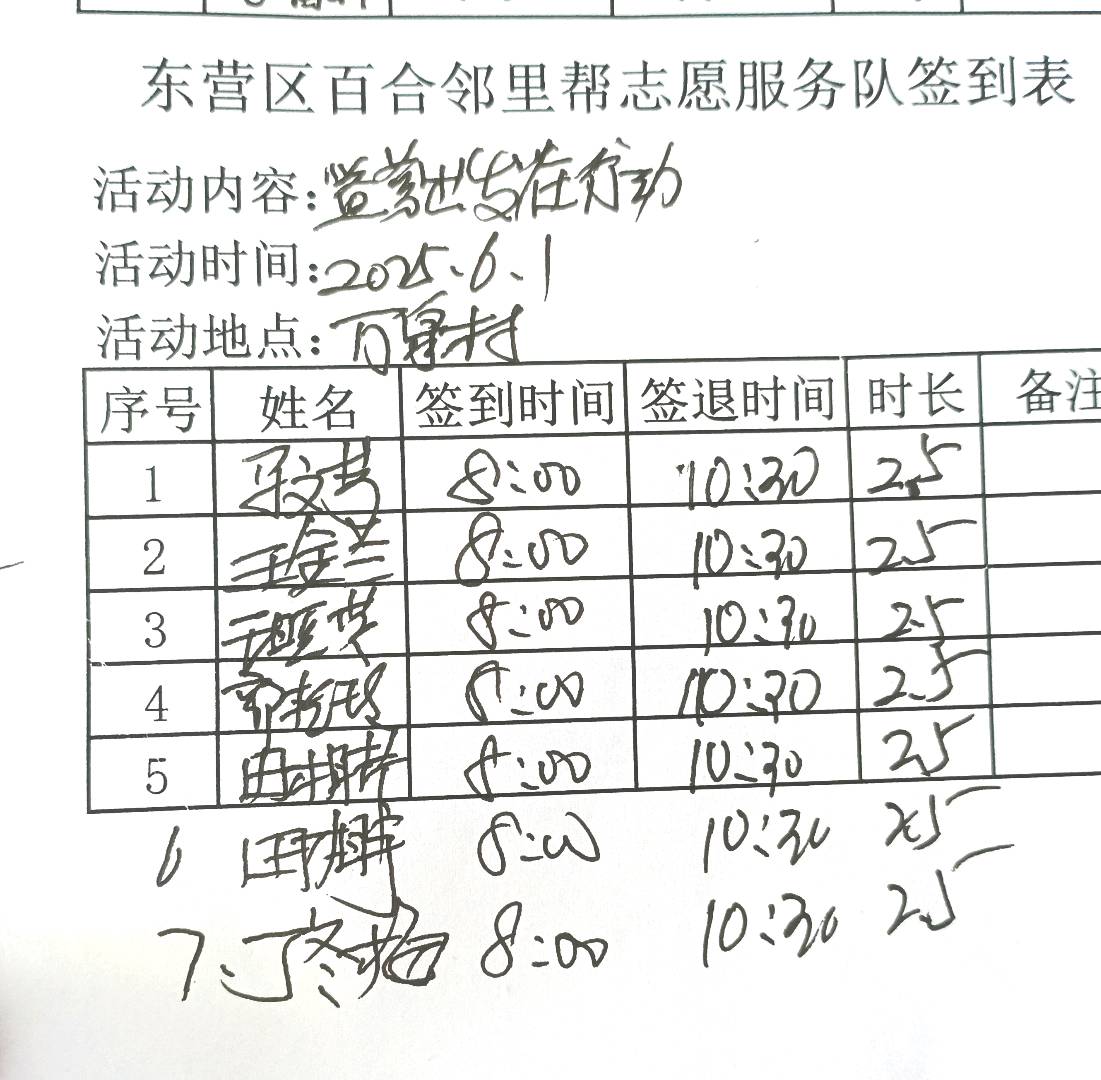 东营区百合邻里帮志愿服务队签到表
活动内容:在行动
活动时间:2025.6.1
活动地点:村
序号 姓名 签到时间 签退时间 时长 备注
1 8:00 10:30 2.5
2 王金兰 8:00 10:30 2.5
3 8:00 10:30 2.5
4 8:00 10:30 2.5
5 8:00 10:30 2.5
6 8:00 10:30 2.5
7. 丁冬梅 8:00 10:30 2.5